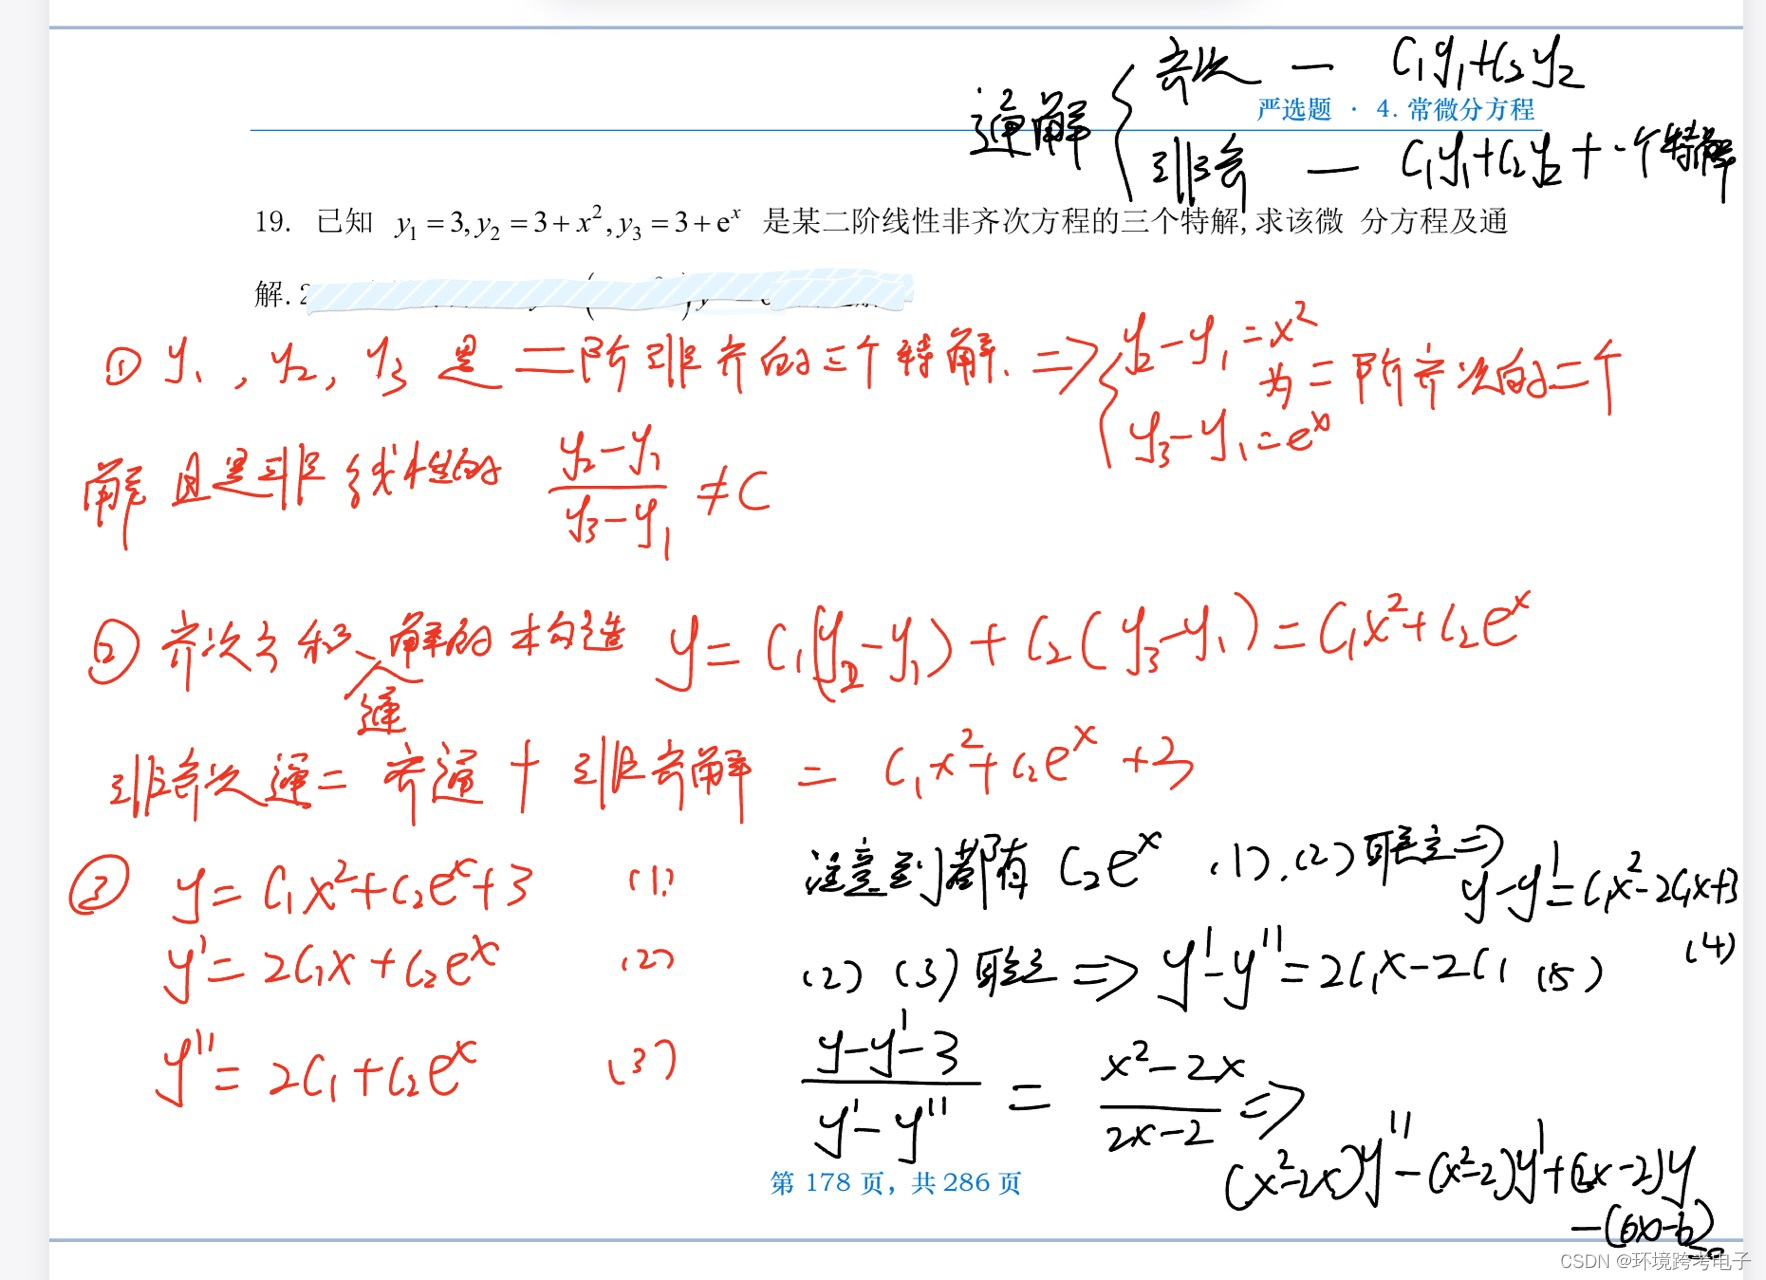 通解 { 齐次 — C₁y₁+C₂y₂
严选题 · 4. 常微分方程
非齐 — C₁y₁+C₂y₂+一个特解
19. 已知 y₁=3, y₂=3+x², y₃=3+eˣ 是某二阶线性非齐次方程的三个特解, 求该微 分方程及通
解. 2
① y₁, y₂, y₃ 是二阶非齐的三个特解. ⇒ { y₂-y₁=x²
为二阶齐次的二个
y₃-y₁=eˣ
解 且是非线性的 (y₂-y₁)/(y₃-y₁) ≠ C
② 齐次方程通解的构造 y=C₁(y₂-y₁)+C₂(y₃-y₁)=C₁x²+C₂eˣ
非齐次通= 齐通+非齐解 = C₁x²+C₂eˣ+3
③ y=C₁x²+C₂eˣ+3 (1)
y'=2C₁x+C₂eˣ (2)
y''=2C₁+C₂eˣ (3)
注意到都有 C₂eˣ (1).(2)联立⇒
y-y'=C₁x²-2C₁x+3
(4)
(2) (3)联立⇒ y'-y''=2C₁x-2C₁ (5)
(y-y'-3)/(y'-y'') = (x²-2x)/(2x-2) ⇒
(x²-2x)y''-(x²-2)y'+(2x-2)y
-(6x-6)=0
第 178 页，共 286 页
CSDN @环境跨考电子